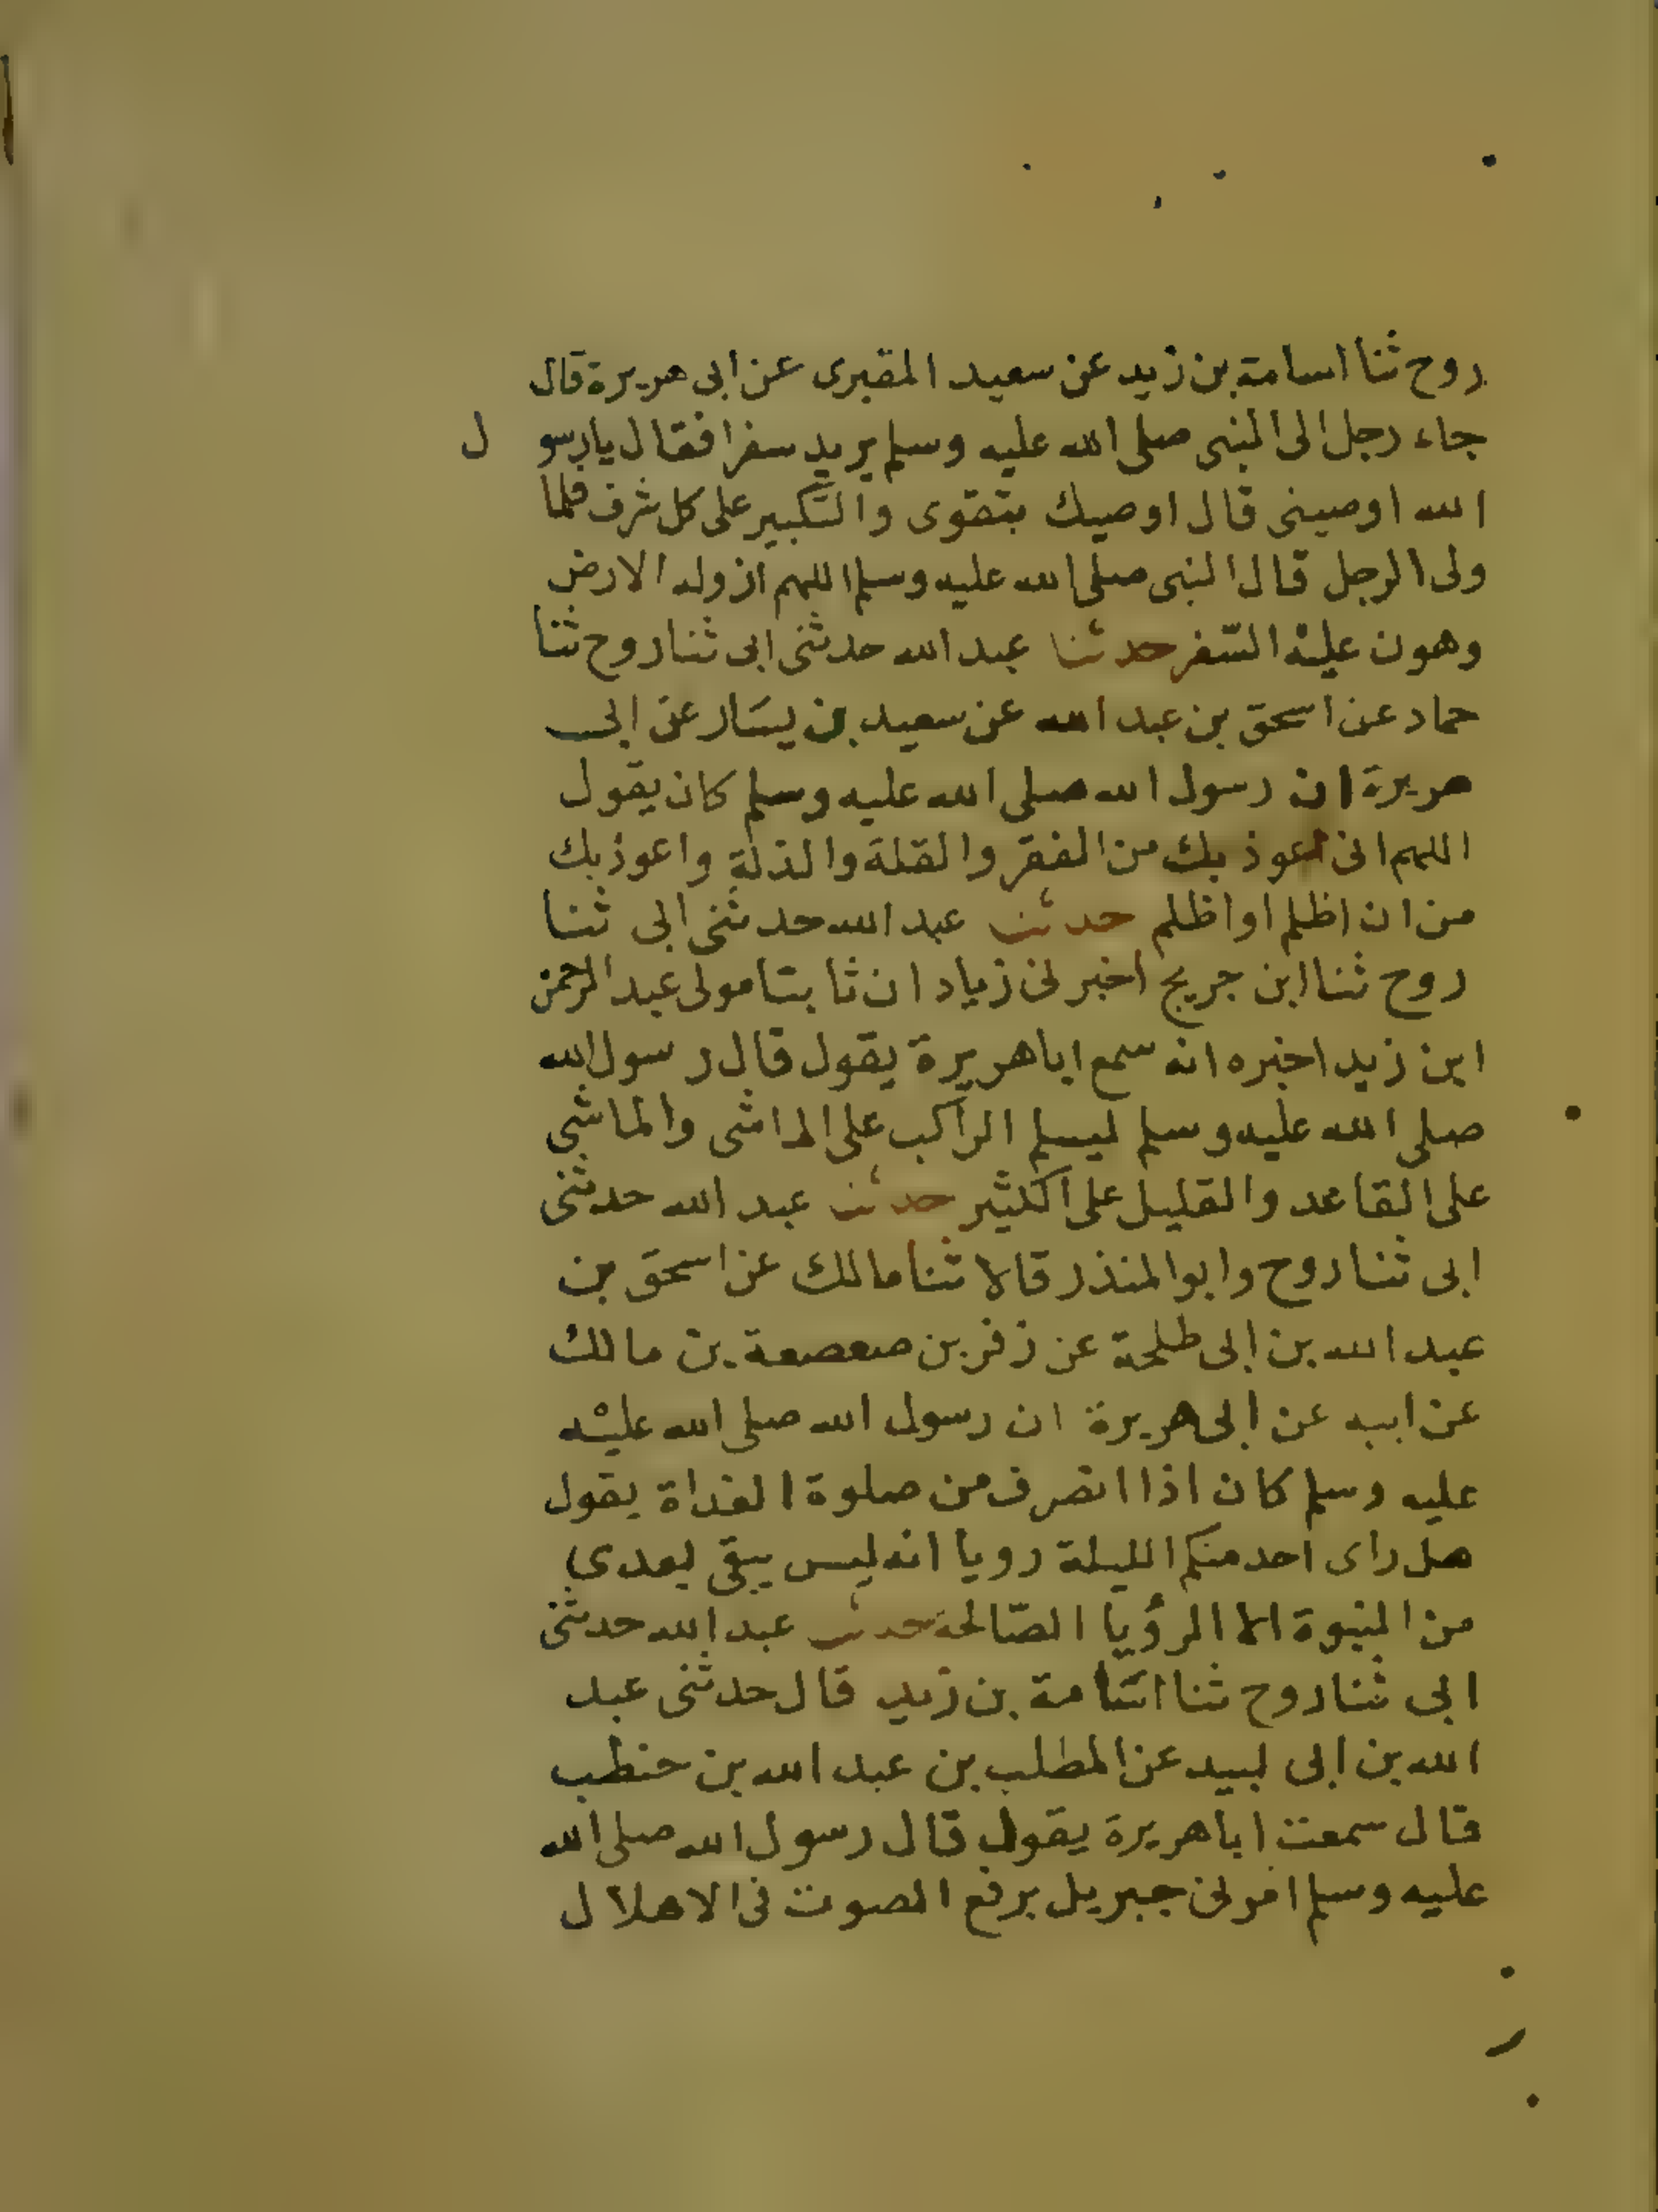 روح ثنا اسامة بن زيد عن سعيد المقبرى عن ابى هريرة قال
جاء رجل الى النبى صلى الله عليه وسلم يريد سفرا فقال يا رسول
الله اوصينى قال اوصيك بتقوى والتكبير على كل شرف فلما
ولى الرجل قال النبى صلى الله عليه وسلم اللهم ازو له الارض
وهون عليه السّفر حدثنا عبد الله حدثنى ابى ثنا روح ثنا
حماد عن اسحق بن عبد الله عن سعيد بن يسار عن ابى
هريرة ان رسول الله صلى الله عليه وسلم كان يقول
اللهم انى اعوذ بك من الفقر والقلة والذلة واعوذ بك
من ان اظلم او اظلم حدثنا عبد الله حدثنى ابى ثنا
روح ثنا ابن جريج اخبرنى زياد ان ثابتا مولى عبد الرحمن
ابن زيد اخبره انه سمع ابا هريرة يقول قال رسول الله
صلى الله عليه وسلم ليسلم الراكب على الماشى والماشى
على القاعد والقليل على الكثير حدثنا عبد الله حدثنى
ابى ثنا روح وابو المنذر قالا ثنا مالك عن اسحق بن
عبد الله بن ابى طلحة عن زفر بن صعصعة بن مالك
عن ابيه عن ابى هريرة ان رسول الله صلى الله عليه
عليه وسلم كان اذا انصرف من صلوة الغداة يقول
هل راى احد منكم الليلة رويا انه ليس يبقى بعدى
من النبوة الا الرؤيا الصّالحة حدثنا عبد الله حدثنى
ابى ثنا روح ثنا اسامة بن زيد قال حدثنى عبد
الله بن ابى لبيد عن المطلب بن عبد الله بن حنطب
قال سمعت ابا هريرة يقول قال رسول الله صلى الله
عليه وسلم امرنى جبريل برفع الصوت فى الاهلال